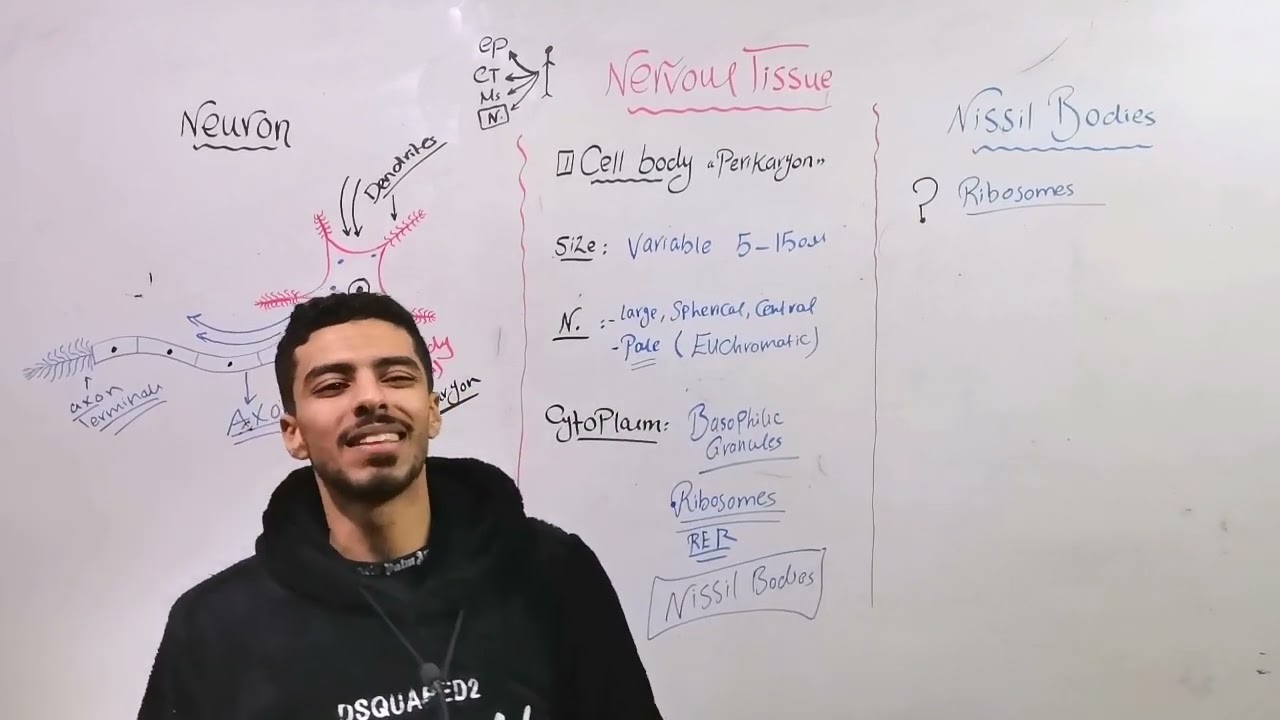 Neuron
Dendrites
axon
Terminals
Axo
dy
aryon
ep
CT
Ms
N.
Nervous Tissue
1 Cell body "Perikaryon"
Size: Variable 5-150um
N. :- Large, Spherical, Central
- Pale (Euchromatic)
Cytoplasm: Basophilic
Granules
Ribosomes
RER
Nissil Bodies
Nissil Bodies
? Ribosomes
Palm
DSQUARED2